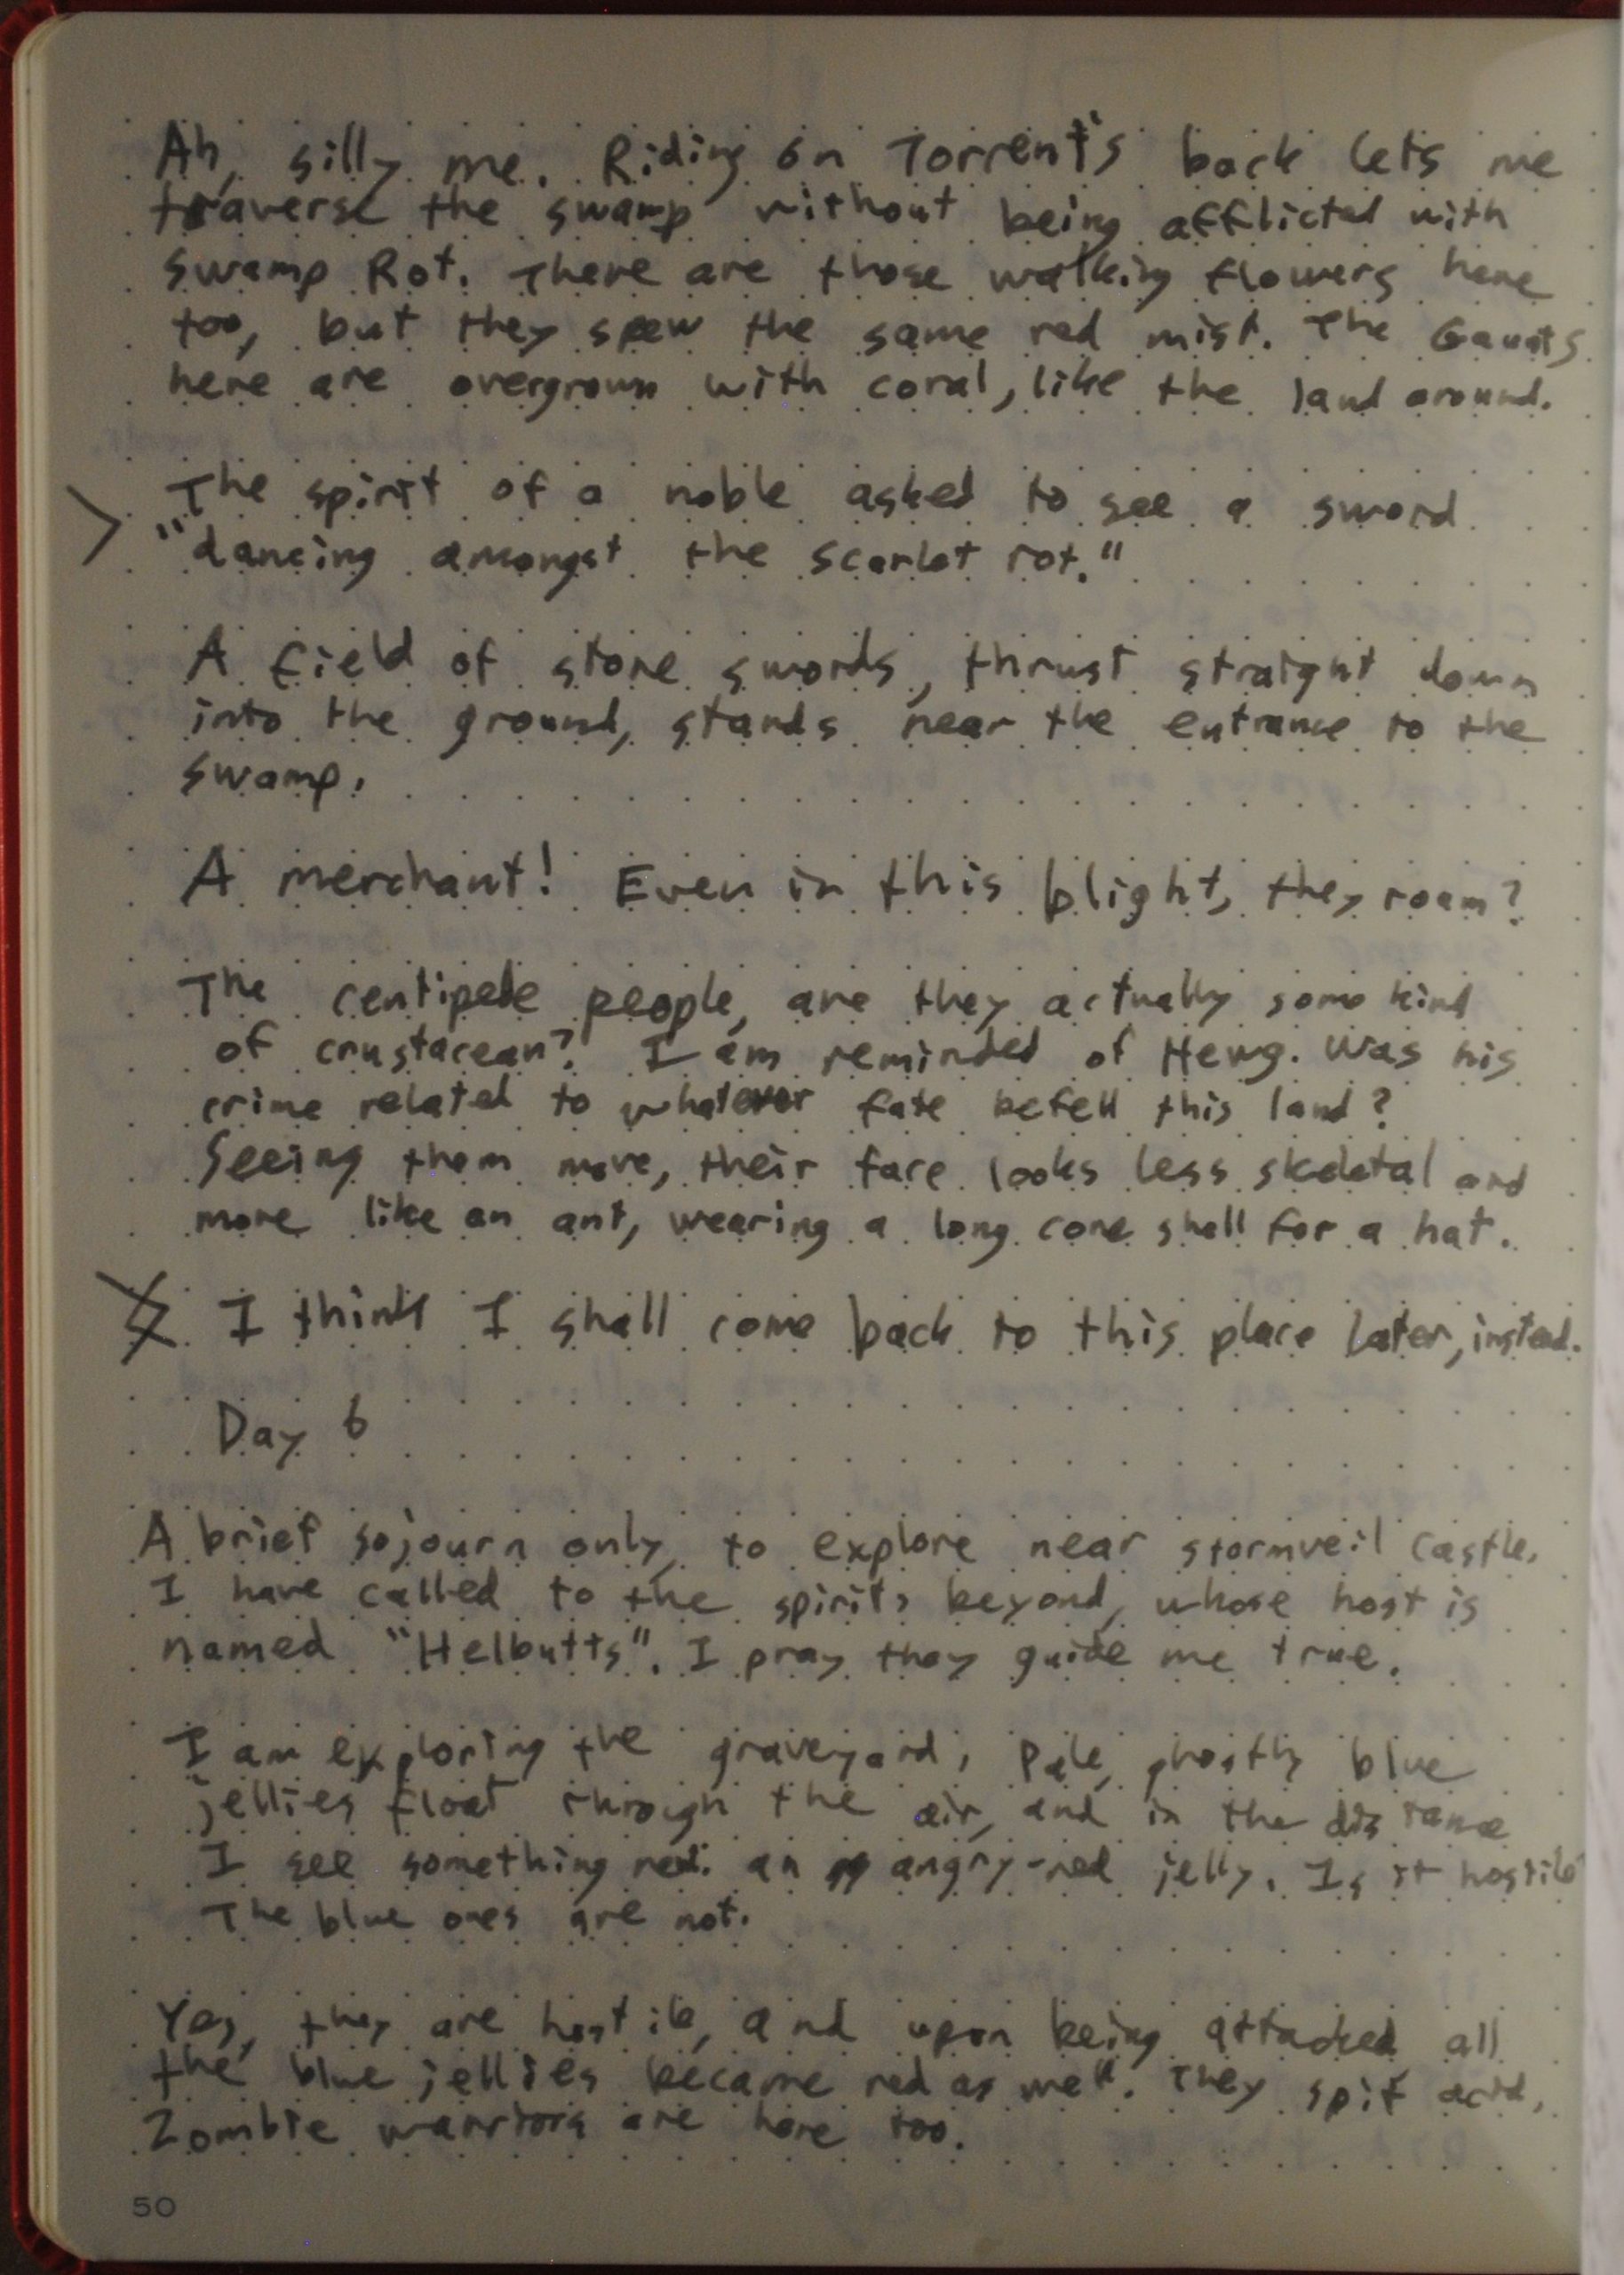 Ah, silly me. Riding on Torrent's back lets me
traverse the swamp without being afflicted with
Swamp Rot. There are those walking flowers here
too, but they spew the same red mist. The Gaunts
here are overgrown with coral, like the land around.
> The spirit of a noble asked to see a sword
"dancing amongst the scarlet rot."
A field of stone swords, thrust straight down
into the ground, stands near the entrance to the
swamp.
A merchant! Even in this blight, they roam?
The centipede people, are they actually some kind
of crustacean? I am reminded of Hewg. Was his
crime related to whatever fate befell this land?
Seeing them move, their face looks less skeletal and
more like an ant, wearing a long cone shell for a hat.
I think I shall come back to this place later, instead.
Day 6
A brief sojourn only, to explore near stormveil castle.
I have called to the spirits beyond, whose host is
named "Helbutts". I pray they guide me true.
I am exploring the graveyard, Pale, ghostly blue
jellies float through the air, and in the distance
I see something red: an angry-red jelly. Is it hostile
The blue ones are not.
Yes, they are hostile, and upon being attacked all
the blue jellies became red as well. They spit acid,
Zombie warriors are here too.
50